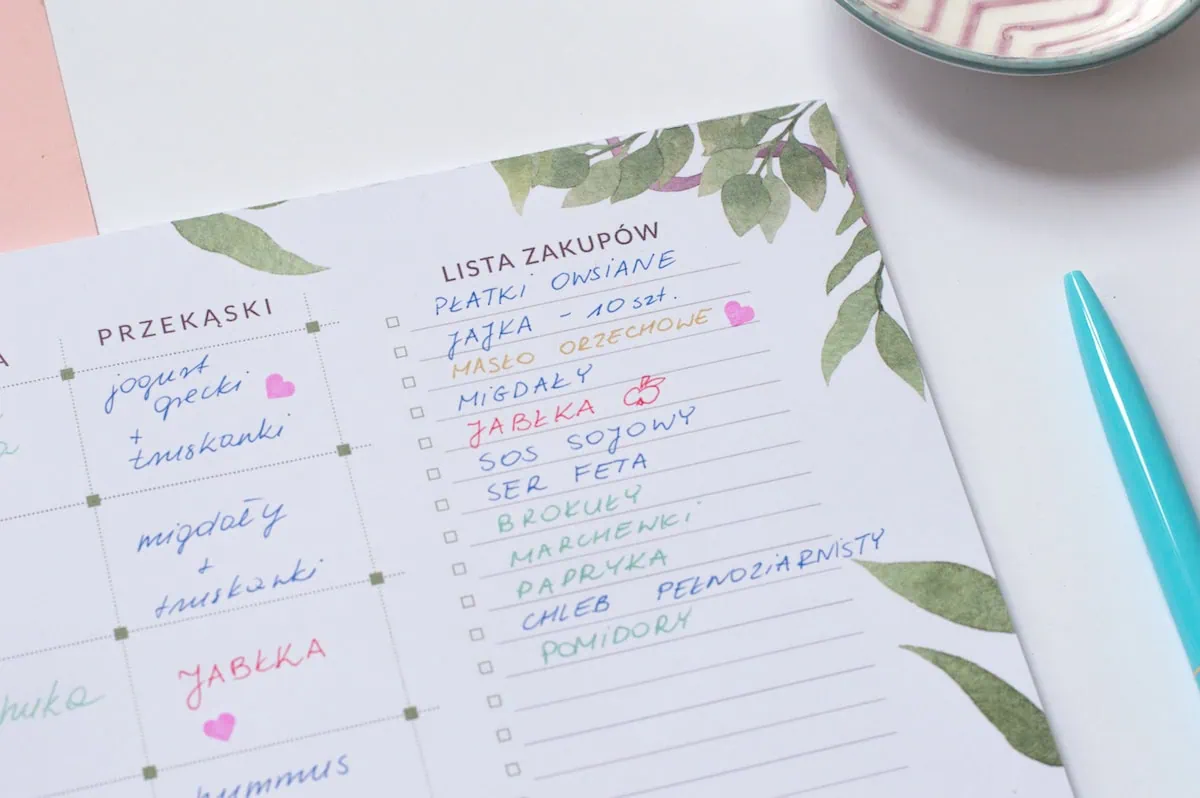 PRZEKĄSKI
jogurt
grecki
+
truskawki
migdały
+
truskawki
JABŁKA
hummus
LISTA ZAKUPÓW
PŁATKI OWSIANE
JAJKA - 10 szt.
MASŁO ORZECHOWE
MIGDAŁY
JABŁKA
SOS SOJOWY
SER FETA
BROKUŁY
MARCHEWKI
PAPRYKA
CHLEB PEŁNOZIARNISTY
POMIDORY